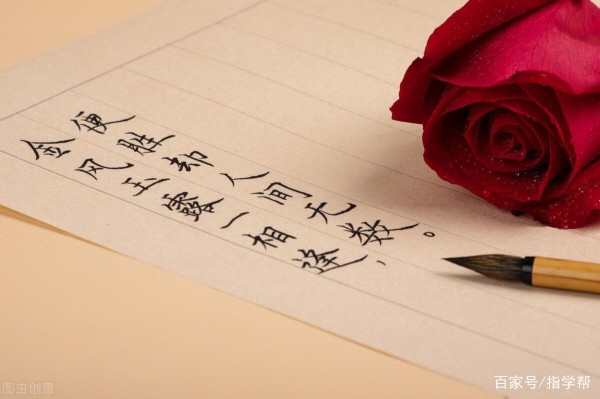 金风玉露一相逢，
便胜却人间无数。
图虫创意
百家号/指学帮